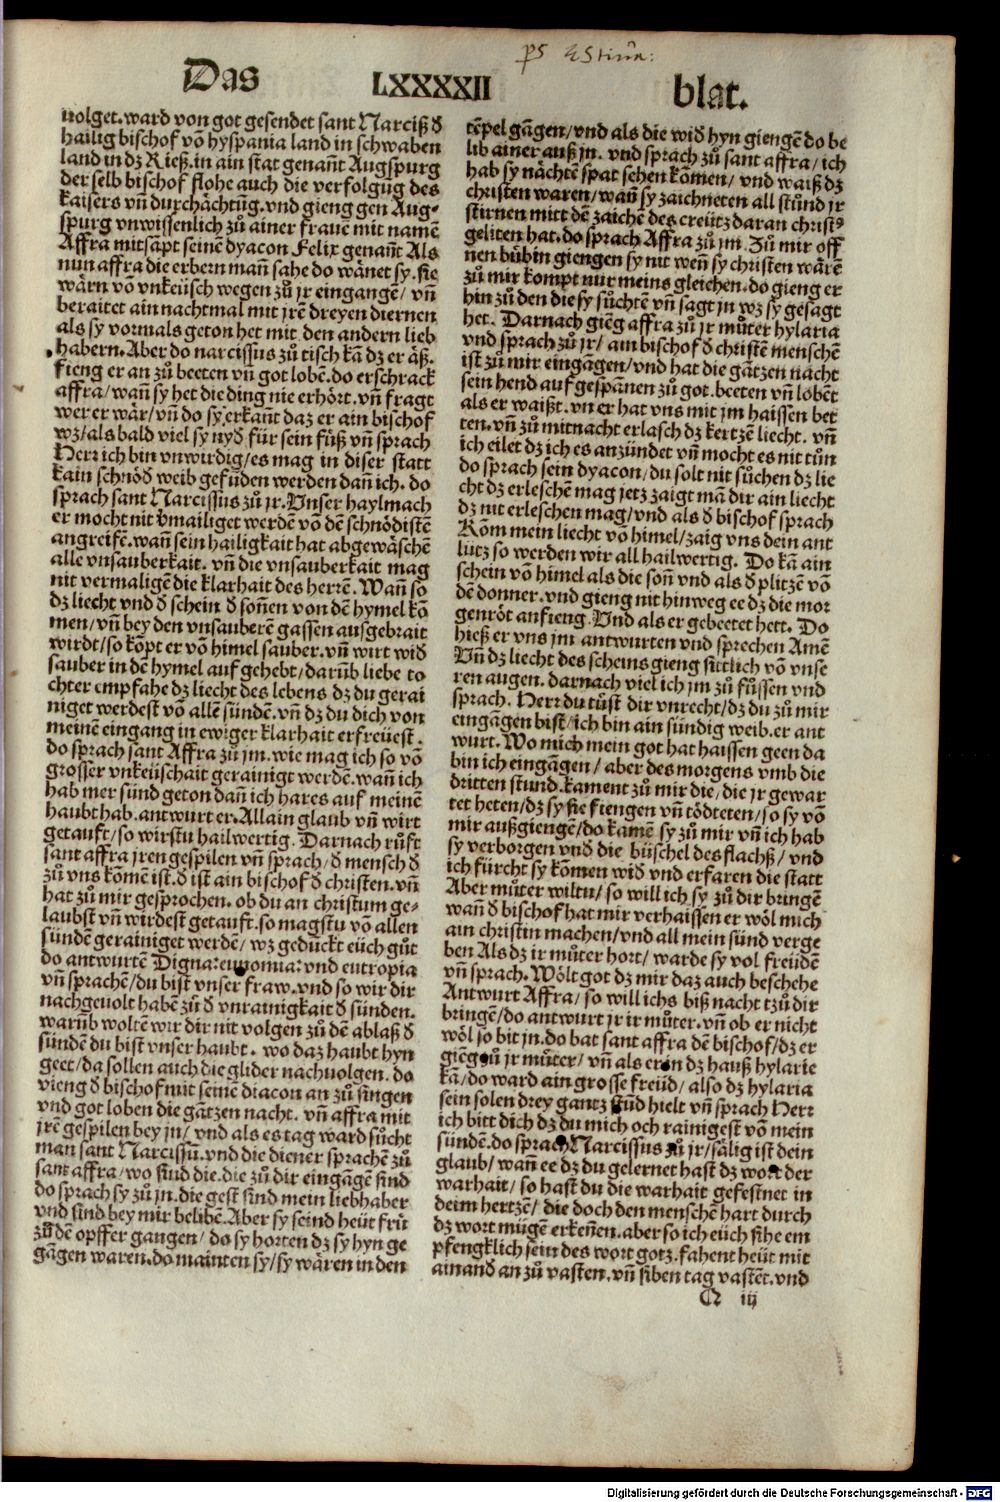 Das LXXXXII blat.
uolget. ward von got gesendet sant Narciß d̕
hailig bischof võ hyspania land in schwaben
land in dz Rieß. in ain stat genañt Augspurg
der selb bischof flohe auch die verfolgũg des
kaisers vñ durchåchtũg. vnd gieng gen Aug⸗
spurg vnwissenlich zů ainer frauẽ mit namẽ
Affra mitsãpt seinẽ dyacon Felix genañt Als
nun affra die erbern mañ sahe do wånet sy. sie
wårn võ vnkeüsch wegen zů jr eingangẽ/ vñ
beraitet ain nachtmal mit jrẽ dreyen diernen
als sy vormals geton het mit den andern lieb
habern. Aber do narcissus zů tisch kã dz er åß.
fieng er an zů beeten vñ got lobẽ. do erschrack
affra/ wañ sy het die ding nie erhört. vñ fragt
wer er wår/ vñ do sy erkañt daz er ain bischof
wz/ als bald viel sy nyd̕ für sein füß vñ sprach
Herr ich bin vnwirdig/ es mag in diser statt
kain schnöd̕ weib gefũden werden dañ ich. do
sprach sant Narcissus zů jr. Vnser haylmach
er mocht nit v̕mailiget werdẽ võ dẽ schnödistẽ
angreifẽ. wañ sein hailigkait hat abgewåschẽ
alle vnsauberkait. vñ die vnsauberkait mag
nit vermaligẽ die klarhait des herrẽ. Wañ so
dz liecht vnd d̕ schein d̕ soñen von dẽ hymel kõ
men/ vñ bey den vnsauberẽ gassen ausgebrait
wirdt/ so kõpt er võ himel sauber. vñ wirt wid̕
sauber in dẽ hymel auf gehebt/ darũb liebe to
chter empfahe dz liecht des lebens dz du gerai
niget werdest võ allẽ sündẽ. vñ dz du dich von
meinẽ eingang in ewiger klarhait erfreüest.
do sprach sant Affra zů jm. wie mag ich so võ
grosser vnkeüschait gerainigt werdẽ. wañ ich
hab mer sünd geton dañ ich hares auf meinẽ
haubt hab. antwurt er. Allain glaub vñ wirt
getauft/ so wirstu hailwertig. Darnach růft
sant affra jren gespilen vñ sprach/ d̕ mensch d̕
zů vns komẽ ist. d̕ ist ain bischof d̕ christen. vñ
hat zů mir gesprochen. ob du an christum ge⸗
laubst vñ wirdest getauft. so magstu võ allen
sündẽ gerainiget werdẽ/ wz geduckt eüch gůt
do antwurtẽ Digna: eunomia: vnd eutropia
vñ sprachẽ/ du bist vnser fraw. vnd so wir dir
nachgeuolt habẽ zů d̕ vnrainigkait d̕ sünden.
warũb woltẽ wir dir nit volgen zů dẽ ablaß d̕
sünden du bist vnser haubt. wo daz haubt hyn
geet/ da sollen auch die glider nachuolgen. do
vieng d̕ bischof mit seinẽ diacon an zů singen
vnd got loben die gãtzen nacht. vñ affra mit
jrẽ gespilen bey jn/ vnd als es tag ward sůcht
man sant Narcissũ. vnd die diener sprachẽ zů
sant affra/ wo sind die. die zů dir eingãgẽ sind
do sprach sy zů jn. die gest sind mein liebhaber
vnd sind bey mir belibẽ. Aber sy seind heüt frü
zů dẽ opffer gangen/ do sy horten dz sy hyn ge
gãgen waren. do mainten sy/ sy wåren in den
tẽpel gãgen/ vnd als die wid̕ hyn giengẽ do be
lib ainer auß jn. vnd sprach zů sant affra/ ich
hab sy nåchtẽ spat sehen kõmen/ vnd waiß dz
christen waren/ wañ sy zaichneten all stũnd jr
stirnen mitt dẽ zaichẽ des creütz daran christꝰ
geliten hat. do sprach Affra zů jm. Zů mir off
nen bübin giengen sy nit weñ sy christen wårẽ
zů mir kompt nur meins gleichen. do gieng er
hin zů den die sy sůchtẽ vñ sagt jn wz sy gesagt
het. Darnach giẽg affra zů jr můter hylaria
vnd sprach zů jr/ ain bischof d̕ christẽ menschẽ
ist zů mir eingãgen/ vnd hat die gãtzen nacht
sein hend auf gespãnen zů got. beeten vñ lobẽt
als er waißt. vñ er hat vns mit jm haissen bet
ten. vñ zů mitnacht erlasch dz kertzẽ liecht. vñ
ich eilet dz ich es anzündet vñ mocht es nit tůn
do sprach sein dyacon/ du solt nit sůchen dz lie
cht dz erleschẽ mag jetz zaigt mã dir ain liecht
dz nit erleschen mag/ vnd als d̕ bischof sprach
Kõm mein liecht võ himel/ zaig vns dein ant
lütz so werden wir all hailwertig. Do kã ain
schein võ himel als die soñ vnd als d̕ plitzẽ võ
dẽ donner. vnd gieng nit hinweg ee dz die mor
genröt anfieng. Vnd als er gebeetet hett. Do
hieß er vns jm antwurten vnd sprechen Amẽ
Vñ dz liecht des scheins gieng sittlich võ vnse
ren augen. darnach viel ich jm zů füssen vnd
sprach. Herr du tůst dir vnrecht/ dz du zů mir
eingãgen bist/ ich bin ain sündig weib. er ant
wurt. Wo mich mein got hat haissen geen da
bin ich eingãgen/ aber des morgens vmb die
dritten stund. kament zů mir die/ die jr gewar
tet heten/ dz sy sie fiengen vñ tödteten/ so sy võ
mir außgiengẽ/ do kamẽ sy zů mir vñ ich hab
sy verborgen vnd̕ die büschel des flachß/ vnd
ich fürcht sy kõmen wid̕ vnd erfaren die statt
Aber můter wiltu/ so will ich sy zů dir bringẽ
wañ d̕ bischof hat mir verhaissen er wöl mich
ain christin machen/ vnd all mein sünd verge
ben Als dz ir můter hort/ warde sy vol freüdẽ
vñ sprach. Wölt got dz mir daz auch beschehe
Antwurt Affra/ so will ichs biß nacht tzů dir
bringẽ/ do antwurt jr ir můter. vñ ob er nicht
wöl so bit jn. do bat sant affra dẽ bischof/ dz er
giẽg zů jr můter/ vñ als er in dz hauß hylarie
kã/ do ward ain grosse freüd/ also dz hylaria
sein solen drey gantz stũd hielt vñ sprach Herr
ich bitt dich dz du mich och rainigest võ mein
sünden. do sprach Narcissus zů jr/ sålig ist dein
glaub/ wañ ee dz du gelernet hast dz wort der
warhait/ so hast du die warhait gefestnet in
deim hertzẽ/ die doch den menschẽ hart durch
dz wort mügẽ erkeñen. aber so ich eüch sihe em
pfengklich sein des wort gotz. fahent heüt mit
ainand̕ an zů vasten. vñ siben tag vastẽt. vnd
iij
Digitalisierung gefördert durch die Deutsche Forschungsgemeinschaft - DFG